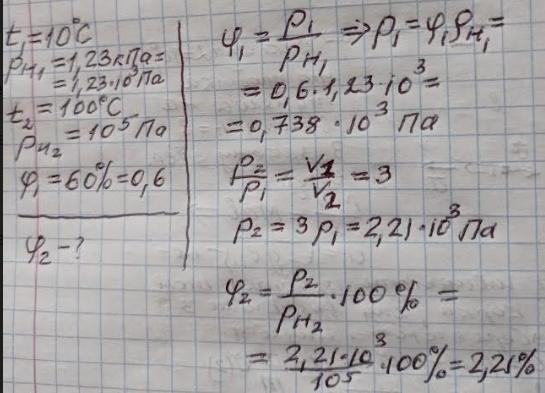 t₁=10°C
pн₁=1,23кПа=
=1,23·10³Па
t₂=100°C
pн₂=10⁵Па
φ₁=60%=0,6
φ₂-?
φ₁=p₁/pн₁⇒p₁=φ₁pн₁=
=0,6·1,23·10³=
=0,738·10³Па
p₂/p₁=V₁/V₂=3
p₂=3p₁=2,21·10³Па
φ₂=p₂/pн₂·100%=
=2,21·10³/10⁵·100%=2,21%